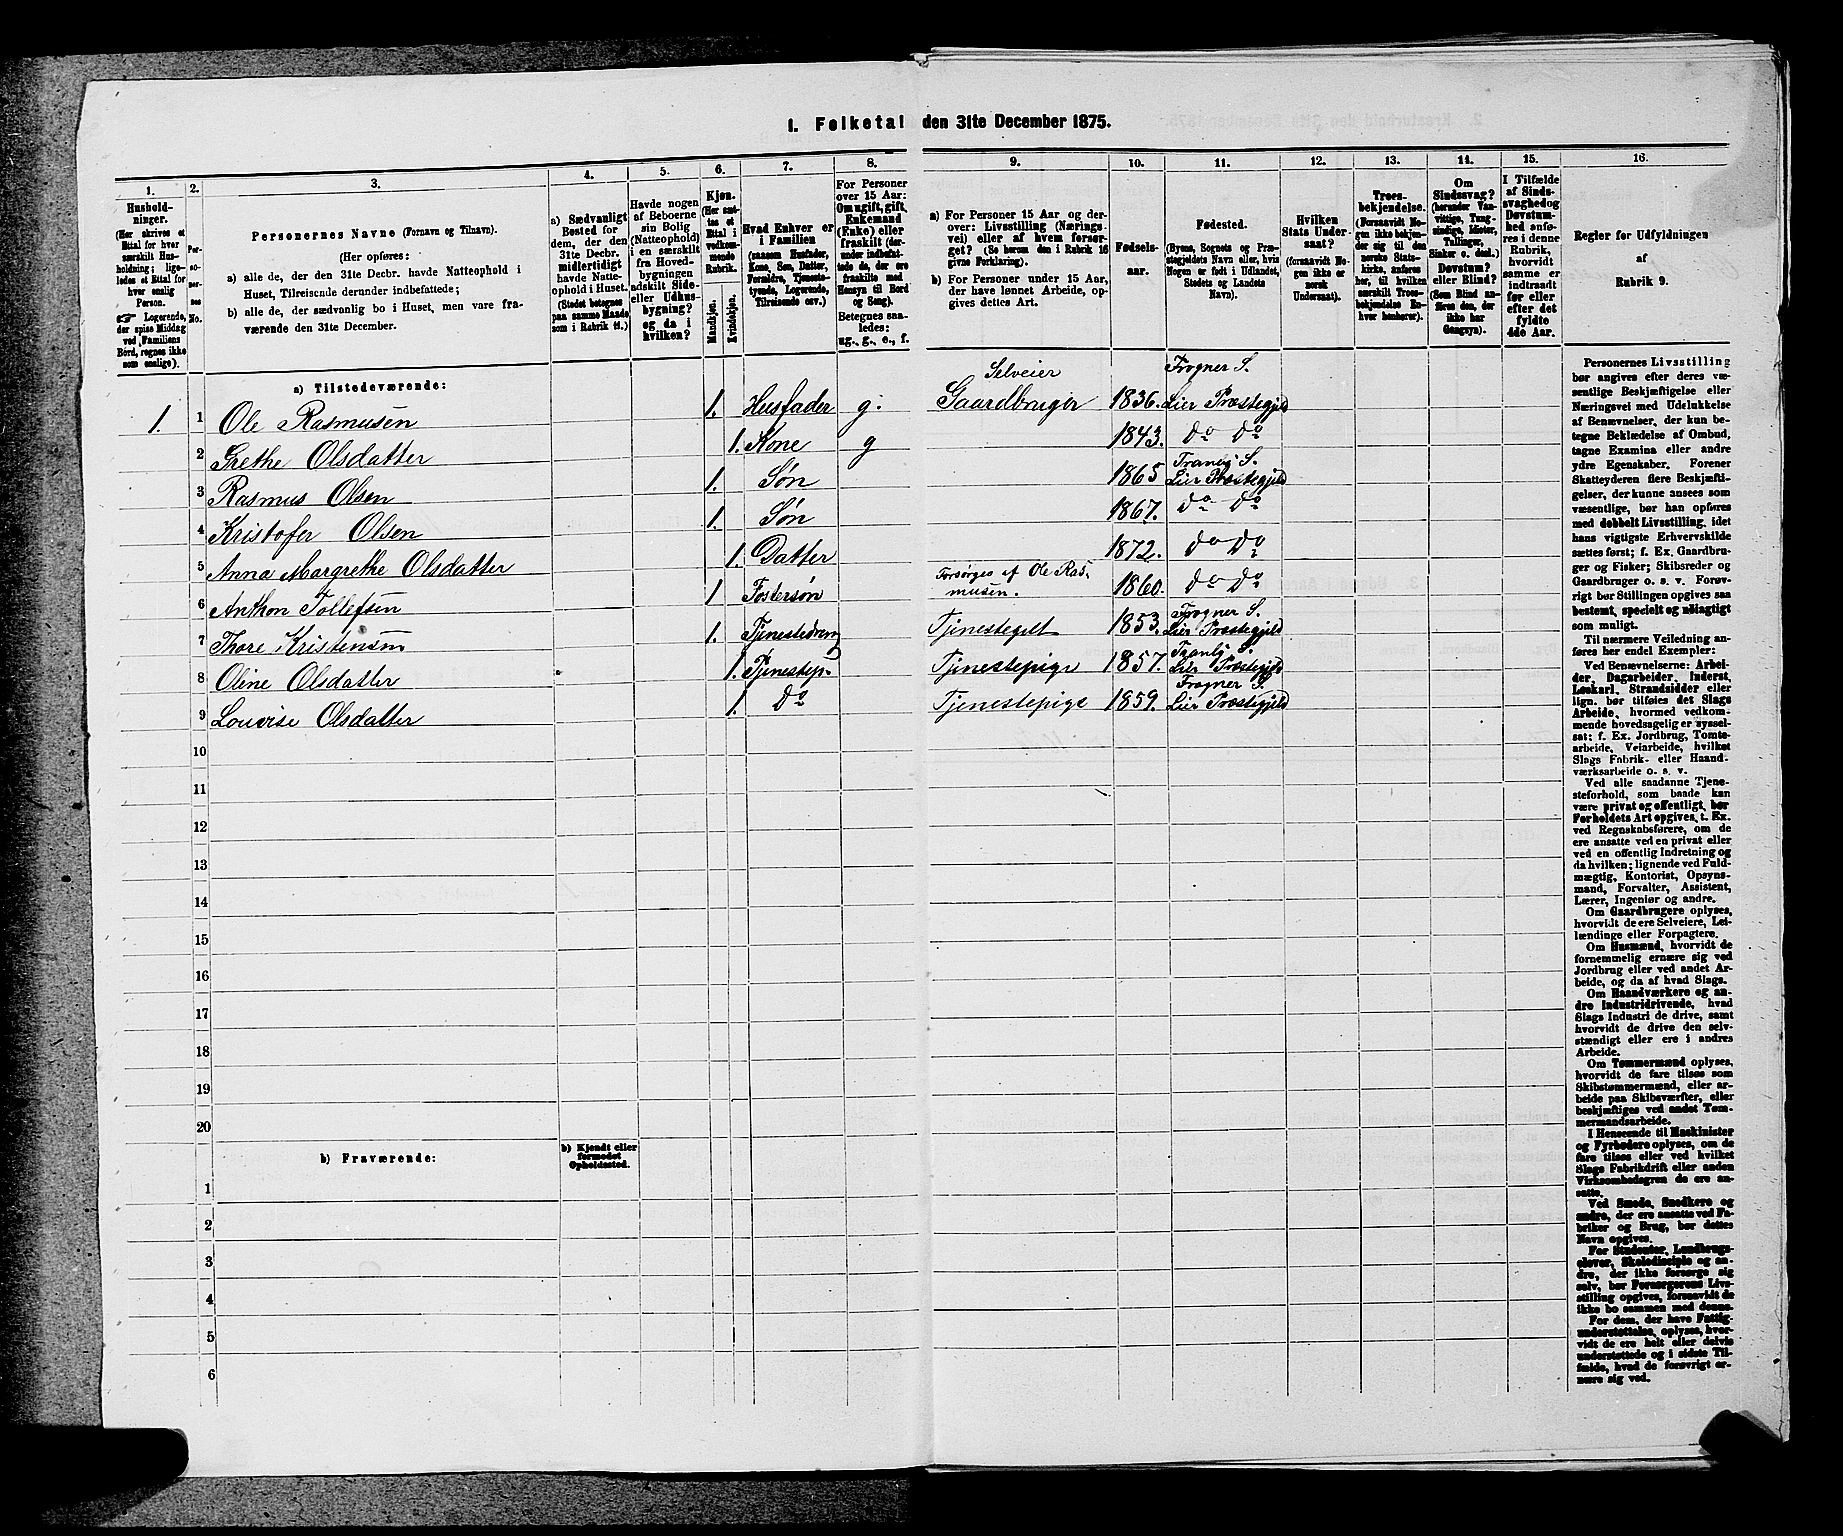 1. Folketal den 31te December 1875.
1. 2. 3. 4. 5. 6. 7. 8. 9. 10. 11. 12. 13. 14. 15. 16.
Hushold-
ninger.
(Her skrives et
Ettal for hver
særskilt Hus-
holdning; lige-
ledes et Ettal for
hver enslig
Person.
☞ Logerende,
der spise Middag
ved Familiens
Bord, regnes ikke
som enslige).
Per-
so-
ner-
nes
No.
Personernes Navne (Fornavn og Tilnavn).
(Her opføres:
a) alle de, der den 31te Decbr. havde Natteophold i
Huset, Tilreisende derunder indbefattede;
b) alle de, der sædvanlig bo i Huset, men vare fra-
værende den 31te December.
a) Sædvanligt
Bosted for
dem, der den
31te Decbr.
midlertidigt
havde Natte-
ophold i Huset.
(Stedet betegnes
paa samme Maade
som i Rubrik 11.)
Havde nogen
af Beboerne
sin Bolig
(Natteophold)
i en særskilt
fra Hoved-
bygningen
adskilt Side-
eller Udhus-
bygning?
og da i
hvilken?
Kjøn.
(Her sæt-
tes et
Ettal i
vedkom-
mende
Rubrik.
Mandkjøn.
Kvindekjøn.
Hvad Enhver er
i Familien
(saasom Husfader,
Kone, Søn, Datter,
Forældre, Tjeneste-
tyende, Logerende,
Tilreisende osv.)
For Personer
over 15 Aar:
Om ugift, gift,
Enkemand
(Enke) eller
fraskilt (der-
under indbefatte-
de de, der ere
fraskilte med
Hensyn til Bord
og Seng).
Betegnes saa-
ledes:
ug., g., e., f.
a) For Personer 15 Aar og der-
over: Livsstilling (Nærings-
vei) eller af hvem forsør-
get? (Se herom den i Rubrik 16
givne Forklaring).
b) For Personer under 15 Aar,
der have lønnet Arbeide, op-
gives dettes Art.
Fødsels-
aar.
Fødested.
(Byens, Sognets og Præ-
stegjeldets Navn eller, hvis
Nogen er født i Udlandet,
Stedets og Landets
Navn).
Hvilken
Stats Under-
saat?
(forsaavidt No-
gen ikke er
norsk
Undersaat).
Troes-
bekjendelse.
(Forsaavidt No-
gen ikke bekjen-
der sig til den
norske Stats-
kirke, anføres
her, til hvilken
særskilt Troes-
bekjendelse En-
hver henhører).
Om
Sindssvag?
(herunder Van-
vittige, Tung-
sindige, Idioter,
Tullinger,
Sinker o. desl.)
Døvstum?
eller Blind?
(Som Blind an-
føres den, der
ikke har
Gangsyn).
I Tilfælde
af Sinds-
svaghed og
Døvstum-
hed anfø-
res i denne
Rubrik,
hvorvidt
samme er
indtraadt
før eller
efter det
fyldte
4de Aar.
Regler for Udfyldningen
af
Rubrik 9.
a) Tilstedeværende:
1. 1 Ole Rasmusen 1. Husfader g. Selveier Gaardbruger 1836. Frogner S. Lier Præstegjeld
2 Grethe Olsdatter 1. Kone g 1843. do do
3 Rasmus Olsen 1. Søn 1865 Tranby S. Lier Præstegjeld
4 Kristofer Olsen 1. Søn 1867. do do
5 Anna Margrethe Olsdatter 1. Datter 1872. do do
6 Anthon Tollefsen 1 Fostersøn Forsørges af Ole Ras-
musen. 1860. do do
7 Thore Kristensen 1. Tjenestedreng Tjenestegut 1853. Frogner S. Lier Præstegjeld
8 Oline Olsdatter 1. Tjenestep. Tjenestepige 1857. Tranby S. Lier Præstegjeld
9 Lovise Olsdatter 1. do Tjenestepige 1859. Frogner S. Lier Præstegjeld
10
11
12
13
14
15
16
17
18
19
20
b) Fraværende:
b) Kjendt eller
formodet
Opholdssted.
1
2
3
4
5
6
Personernes Livsstilling
bør angives efter deres væ-
sentlige Beskjæftigelse eller
Næringsvei med Udelukkelse
af Benævnelser, der kun be-
tegne Beklædelse af Ombud,
tagne Examina eller andre
ydre Egenskaber. Forener
Skatteyderen flere Beskjæfti-
gelser, der kunne ansees som
væsentlige, bør han opføres
med dobbelt Livsstilling, idet
hans vigtigste Erhvervskilde
sættes først; f. Ex. Gaardbru-
ger og Fisker; Skibsreder og
Gaardbruger o. s. v. Forøv-
rigt bør Stillingen opgives saa
bestemt, specielt og nøiagtigt
som muligt.
Til nærmere Veiledning an-
føres her endel Exempler:
Ved Benævnelserne: Arbei-
der, Dagarbeider, Inderst,
Løskarl, Strandsidder eller
lign. bør tilføies det Slags
Arbeide, hvormed vedkom-
mende hovedsagelig er syssel-
sat; f. Ex. Jordbrug, Tomte-
arbeide, Veiarbeide, hvilket
Slags Fabrik- eller Haand-
værksarbeide o. s. v.
Ved alle saadanne Tjene-
steforhold, som baade kan
være privat og offentligt, bør
Forholdets Art opgives, t. Ex.
ved Regnskabsførere, om de
ere ansatte ved en privat eller
ved en offentlig Indretning og
da hvilken; lignende ved Fuld-
mægtig, Kontorist, Opsyns-
mand, Forvalter, Assistent,
Lærer, Ingeniør og andre.
Om Gaardbrugere oplyses,
hvorvidt de ere Selveiere, Lei-
lændinge eller Forpagtere.
Om Husmænd, hvorvidt de
fornemmelig ernære sig ved
Jordbrug eller ved andet Ar-
beide, og da af hvad Slags.
Om Haandværkere og an-
dre Industridrivende, hvad
Slags Industri de drive, samt
hvorvidt de drive den selv-
stændigt eller ere i andres
Arbeide.
Om Tømmermænd oplyses,
hvorvidt de fare tilsøs som
Skibstømmermænd, eller ar-
beide paa Skibsværfter, eller
beskjæftiges ved andet Tøm-
mermandsarbeide.
I Henseende til Maskinister
og Fyrbødere oplyses, om de
fare tilsøs eller ved hvilket
Slags Fabrikdrift eller anden
Virksomhedsgren de ere an-
satte.
Ved Smede, Snedkere og
andre, der ere ansatte ved Fa-
briker og Brug, bør dettes
Navn opgives.
For Studenter, Landbrugs-
elever, Skoledisciple og an-
dre, der ikke forsørge sig
selv, bør Forsørgerens Livs-
stilling opgives, forsaavidt de
ikke bo sammen med denne.
For dem, der have Fattig-
understøttelse, oplyses, hvor-
vidt de ere helt eller delvis
understøttede og i sidste Til-
fælde, hvad de forøvrigt er-
nære sig ved.